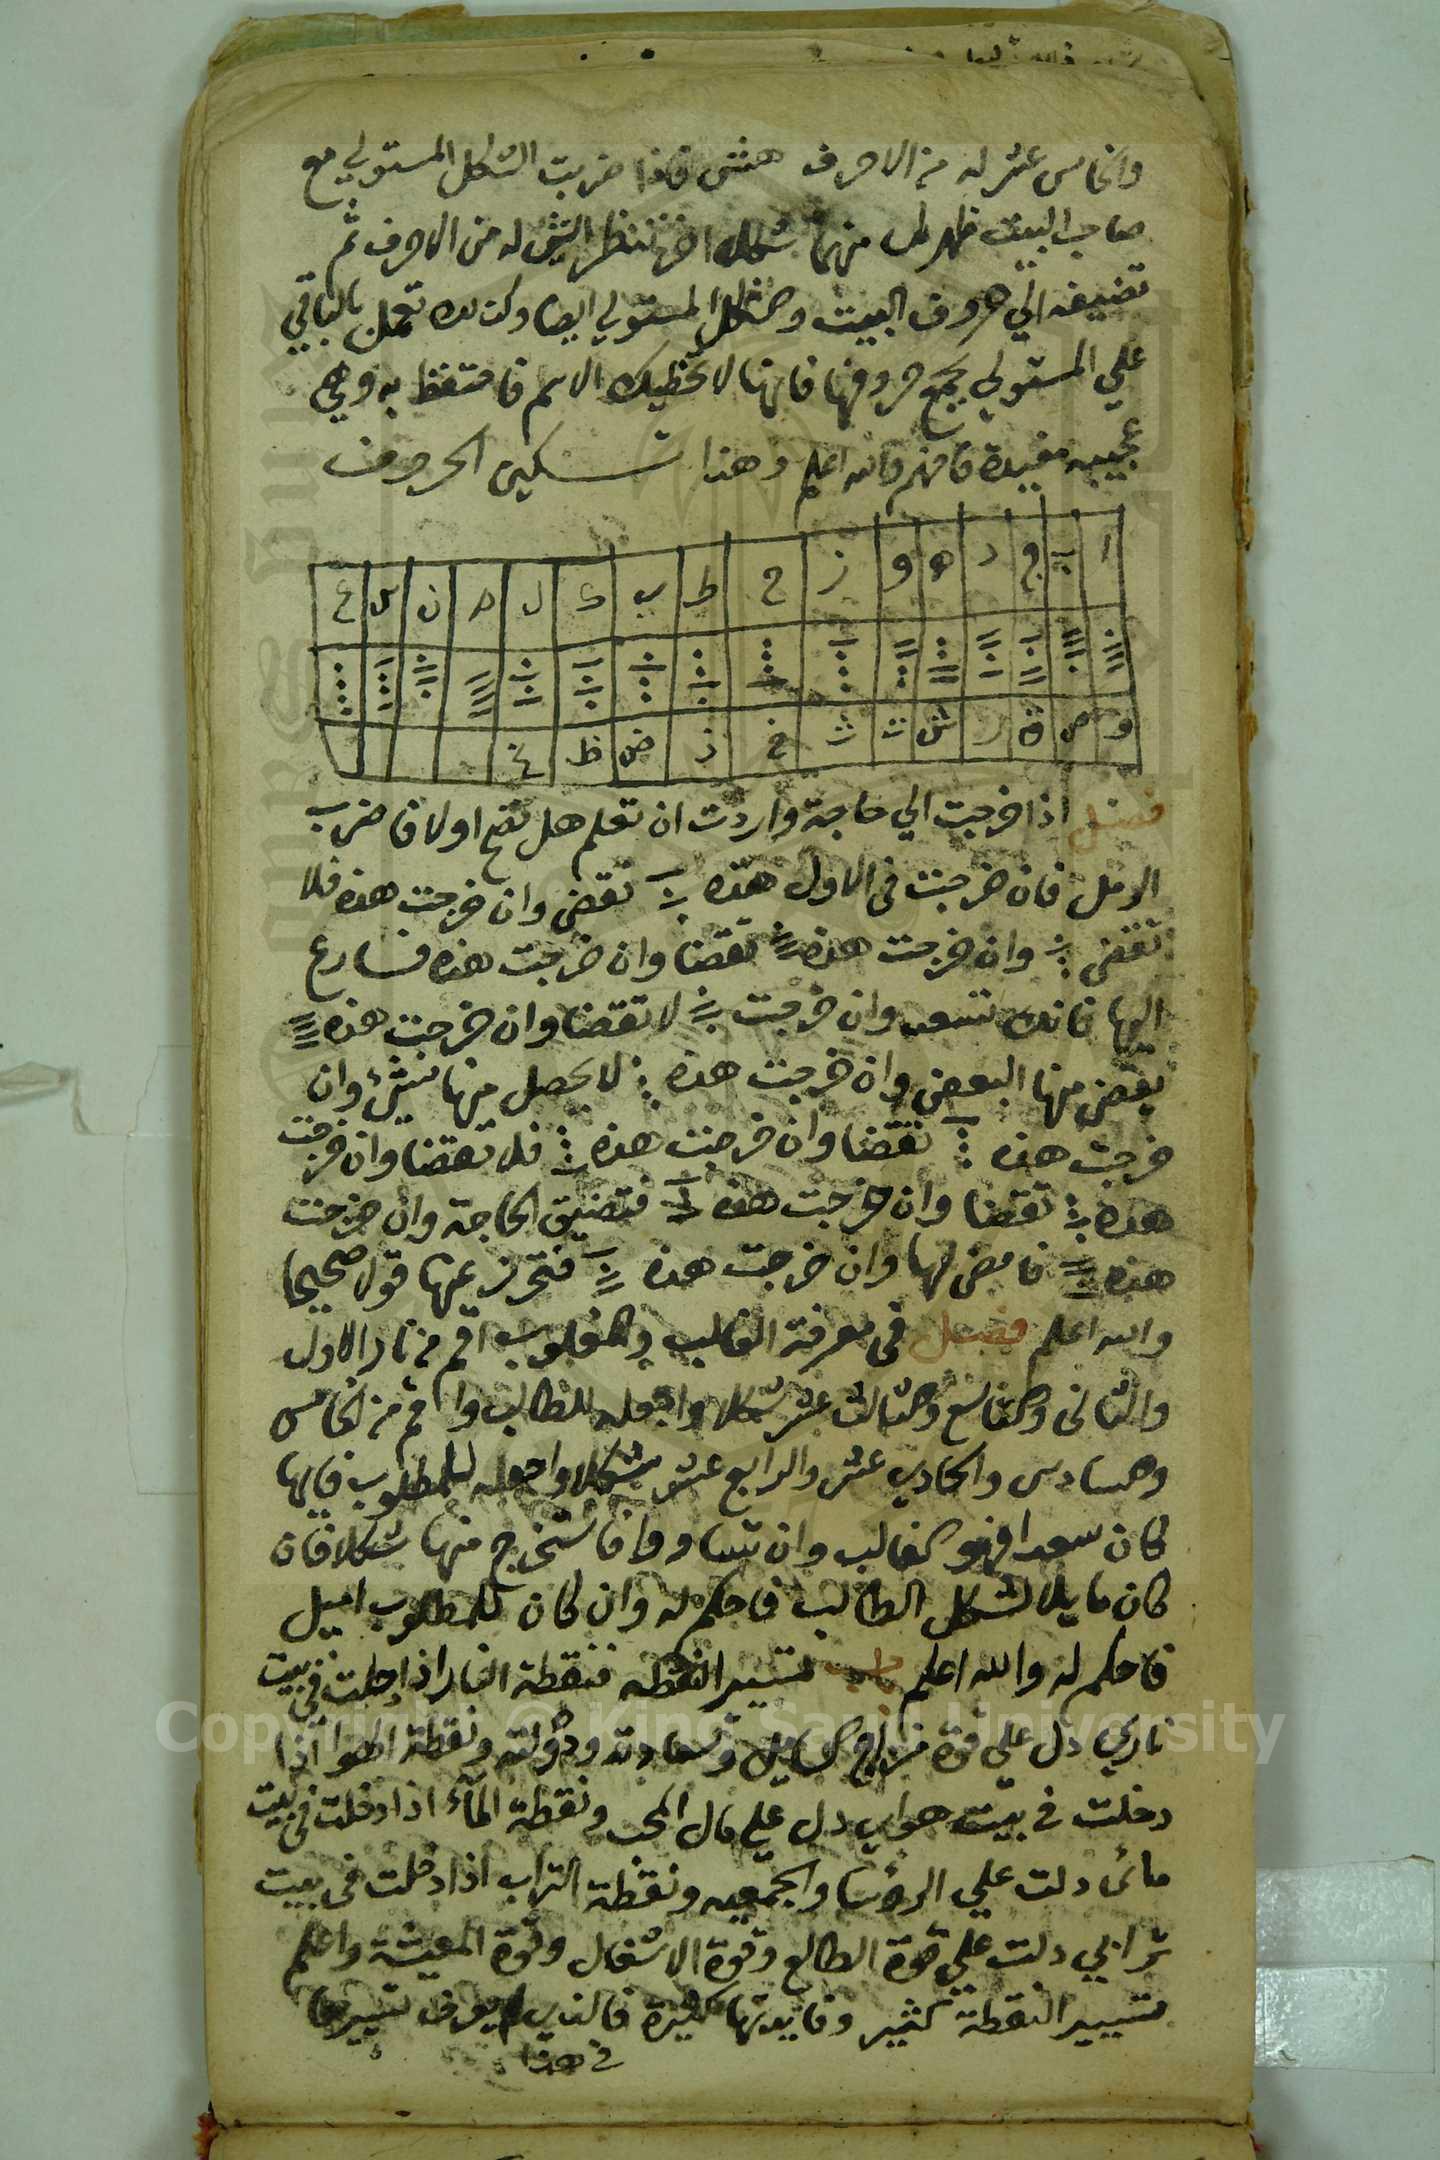 والخامس عشر له من الاحرف هنث فاذا ضربت الشكل المستولي مع
صاحب البيت ظهر لك منهما شكلا اخر تنظر اليش له من الاحرف ثم
تضيفه الي حروف البيت وشكل المستولي ايضا وكذلك تعمل بالباقي
علي المستولي بجمع حروفها فانها لا تخطيك الاسم فاحتفظ به وهي
عجيبه مفيدة فافهم والله اعلم وهذا تسكين الحروف
ا ب ج د ه و ز ح ط ي ك ل م ن س ع
ص ق ر ش ت ث خ ذ ض ظ غ
فصل اذا خرجت الي حاجة واردت ان تعلم هل تقضي اولا فاضرب
الرمل فان خرجت في الاول هذه تقضي وان خرجت هذه فلا
تقضي وان خرجت هذه تقضا وان خرجت هذه فسارع
اليها فانك تسعد وان خرجت لا تقضا وان خرجت هذه
يقضي منها البعض وان خرجت هذه لا يحصل منها شيئ وان
خرجت هذه تقضا وان خرجت هذه فلا تقضا وان خرجت
هذه تقضا وان خرجت هذه فتضيق الحاجة وان خرجت
هذه فامضي لها وان خرجت هذه فتحرز عنها قولا صحيحا
والله اعلم فصل في معرفة الغالب والمغلوب اقم من نار الاول
والثاني والتاسع والثالث عشر شكلا واجعله للطالب واقم من الخامس
والسادس والحادي عشر والرابع عشر شكلا واجعله للمطلوب فايها
كان سعدا فهو الغالب وان تساووا فاستخرج منها شكلا فان
كان مايلا لشكل الطالب فاحكم له وان كان للمطلوب اميل
فاحكم له والله اعلم باب تسيير النقطه فنقطة النار اذا حلت في بيت
ناري دل علي قوة مزاج السايل وسعادته ودولته ونقطة الهوا اذا
دخلت في بيت هواي دل علي مال المحب ونقطة الماء اذا دخلت في بيت
مائي دلت علي الرؤسا والجمعيه ونقطة التراب اذا دخلت في بيت
ترابي دلت علي قوة الطالع وقوة الاشغال وقوة المعيشة واعلم
تسيير النقطة كثير وفايدتها كثيرة فالذي لم يعرف تسييرها
في هذا
Copyright © King Saud University